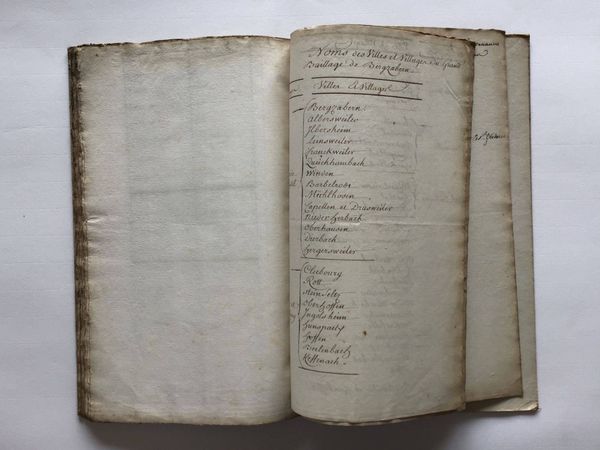 Noms des Villes et Villages du Grand
Baillage de Bergzabern.
Villes & Villages
Bergzabern
Albersweiler
Ilbesheim
Leinsweiler
Franckweiler
Queichhambach
Winden
Barbelrode
Mühlhofen
Capellen et Drusweiler
Nieder Horbach
Oberhausen
Dierbach
Hergersweiler
Cleebourg
Rott
Steinseltz
Oberhoffen
Ingolsheim
Hunspach
Hoffen
Keffenach